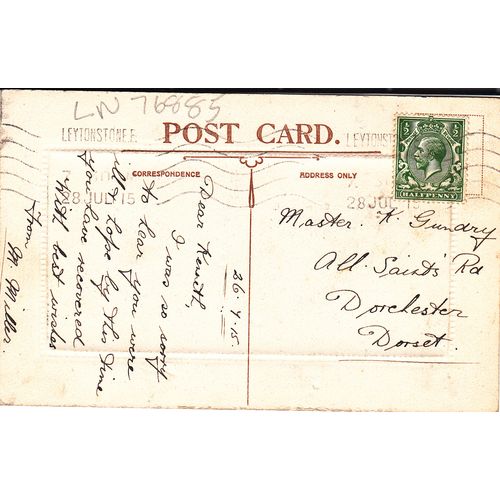 LN 76885
LEYTONSTONE.E
LEYTONSTONE
POST CARD.
CORRESPONDENCE
ADDRESS ONLY
28 JUL 15
28 JUL 15
½ ½
HALFPENNY
26.7.15.
Dear Kenith,
I was so sorry
to hear you were
ill & hope by this time
you have recovered
With best wishes
from
M. Miller
Master. K. Gundry
All. Saint's Rd
Dorchester
Dorset.